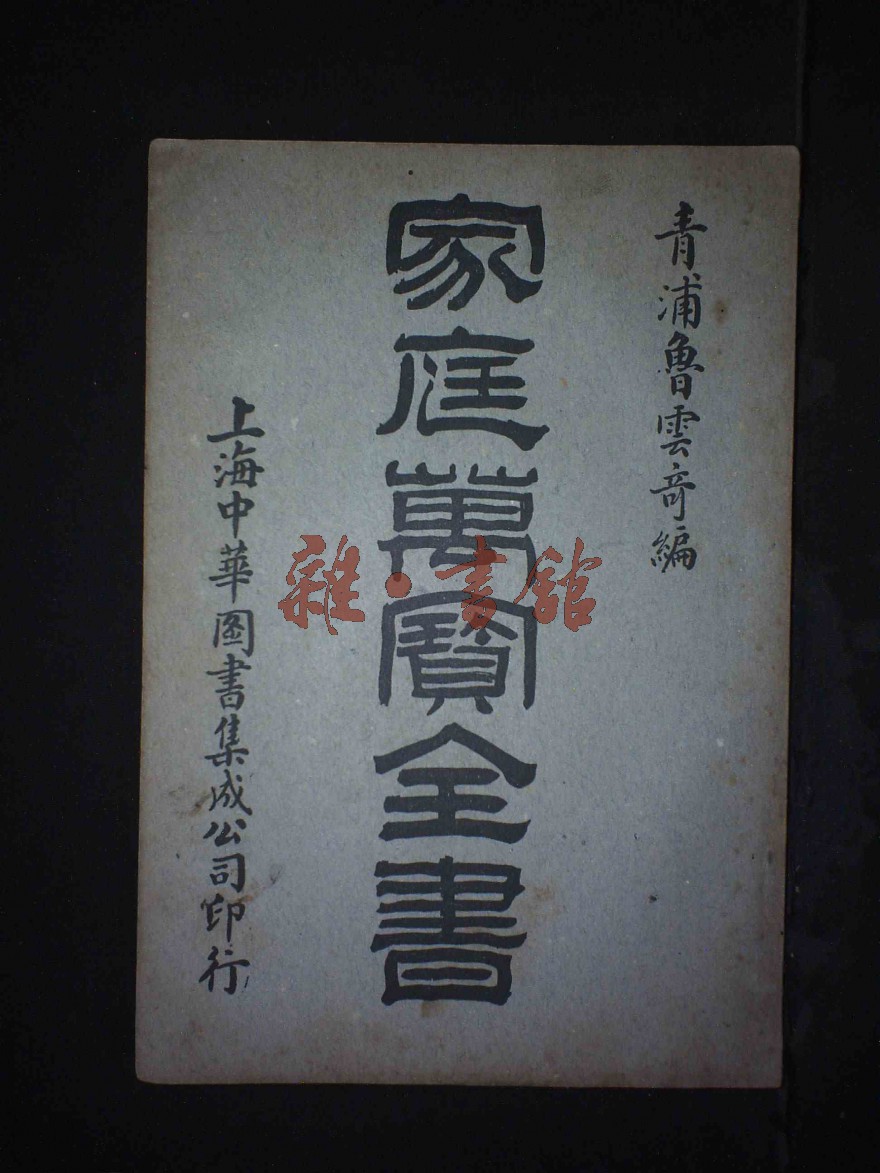 青浦魯雲奇編
家庭萬寶全書
上海中華圖書集成公司印行
雜·書館